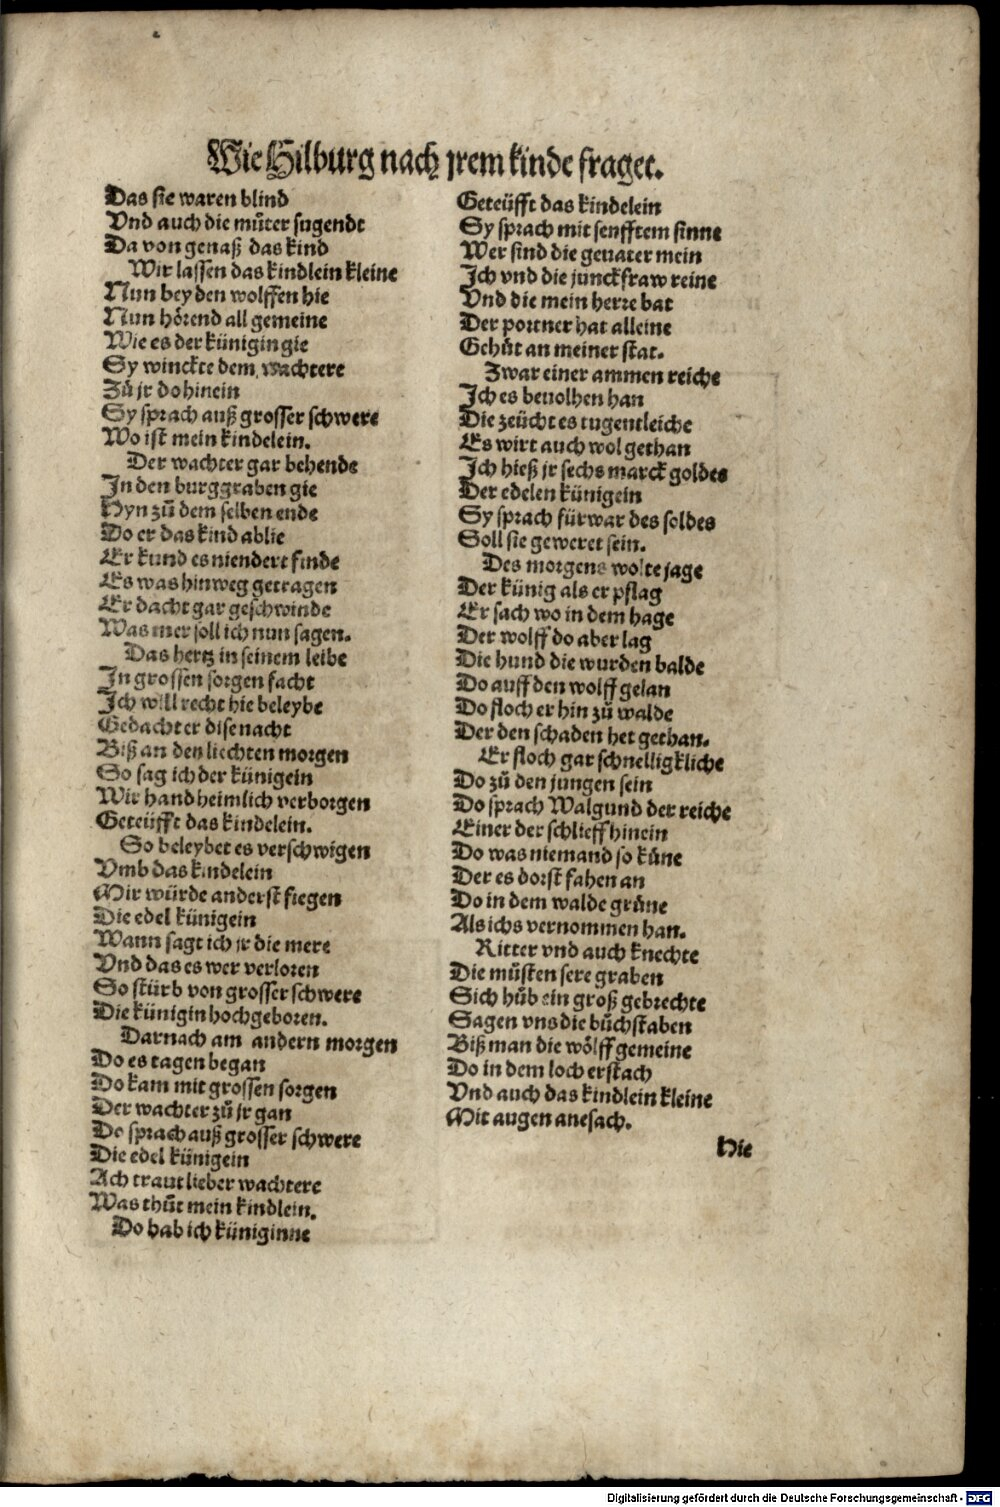 Wie Hilburg nach jrem kinde fraget.
Das sie waren blind
Vnd auch die můter sugendt
Da von genaß das kind
Wir lassen das kindlein kleine
Nun bey den wolffen hie
Nun hörend all gemeine
Wie es der künigin gie
Sy winckte dem wachtere
Zů jr do hinein
Sy sprach auß grosser schwere
Wo ist mein kindelein.
Der wachter gar behende
In den burggraben gie
Hyn zů dem selben ende
Do er das kind ablie
Er kund es niendert finde
Es was hinweg getragen
Er dacht gar geschwinde
Was mer soll ich nun sagen.
Das hertz in seinem leibe
In grossen sorgen facht
Ich will recht hie beleybe
Gedacht er dise nacht
Biß an den liechten morgen
So sag ich der künigein
Wir hand heimlich verborgen
Geteüfft das kindelein.
So beleybet es verschwigen
Vmb das kindelein
Mir würde anderst fiegen
Die edel künigein
Wann sagt ich jr die mere
Vnd das es wer verloren
So stürb von grosser schwere
Die künigin hochgeboren.
Darnach am andern morgen
Do es tagen began
Do kam mit grossen sorgen
Der wachter zů jr gan
Do sprach auß grosser schwere
Die edel künigein
Ach traut lieber wachtere
Was thůt mein kindlein.
Do hab ich küniginne
Geteüfft das kindelein
Sy sprach mit senfftem sinne
Wer sind die geuater mein
Ich vnd die junckfraw reine
Vnd die mein herre bat
Der portner hat alleine
Gehůt an meiner stat.
Zwar einer ammen reiche
Ich es beuolhen han
Die zeücht es tugentleiche
Es wirt auch wol gethan
Ich hieß jr sechs marck goldes
Der edelen künigein
Sy sprach fürwar des soldes
Soll sie geweret sein.
Des morgens wolte jage
Der künig als er pflag
Er sach wo in dem hage
Der wolff do aber lag
Die hund die wurden balde
Do auff den wolff gelan
Do floch er hin zů walde
Der den schaden het gethan.
Er floch gar schnelligkliche
Do zů den jungen sein
Do sprach Walgund der reiche
Einer der schlieff hinein
Do was niemand so küne
Der es dorst fahen an
Do in dem walde grüne
Als ichs vernommen han.
Ritter vnd auch knechte
Die můsten sere graben
Sich hůb ein groß gebrechte
Sagen vns die bůchstaben
Biß man die wölff gemeine
Do in dem loch erstach
Vnd auch das kindlein kleine
Mit augen anesach.
Hie
Digitalisierung gefördert durch die Deutsche Forschungsgemeinschaft - DFG